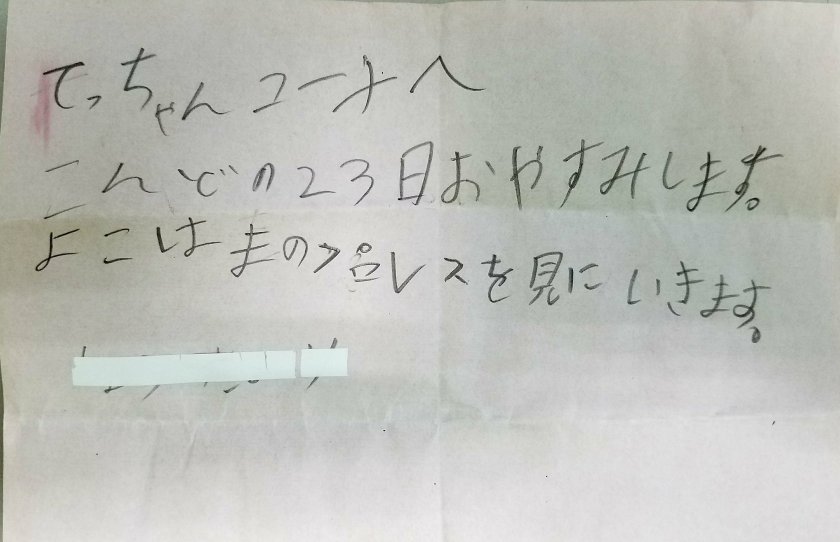 てっちゃんコーチへ
こんどの23日おやすみします。
よこはまのプロレスを見にいきます。